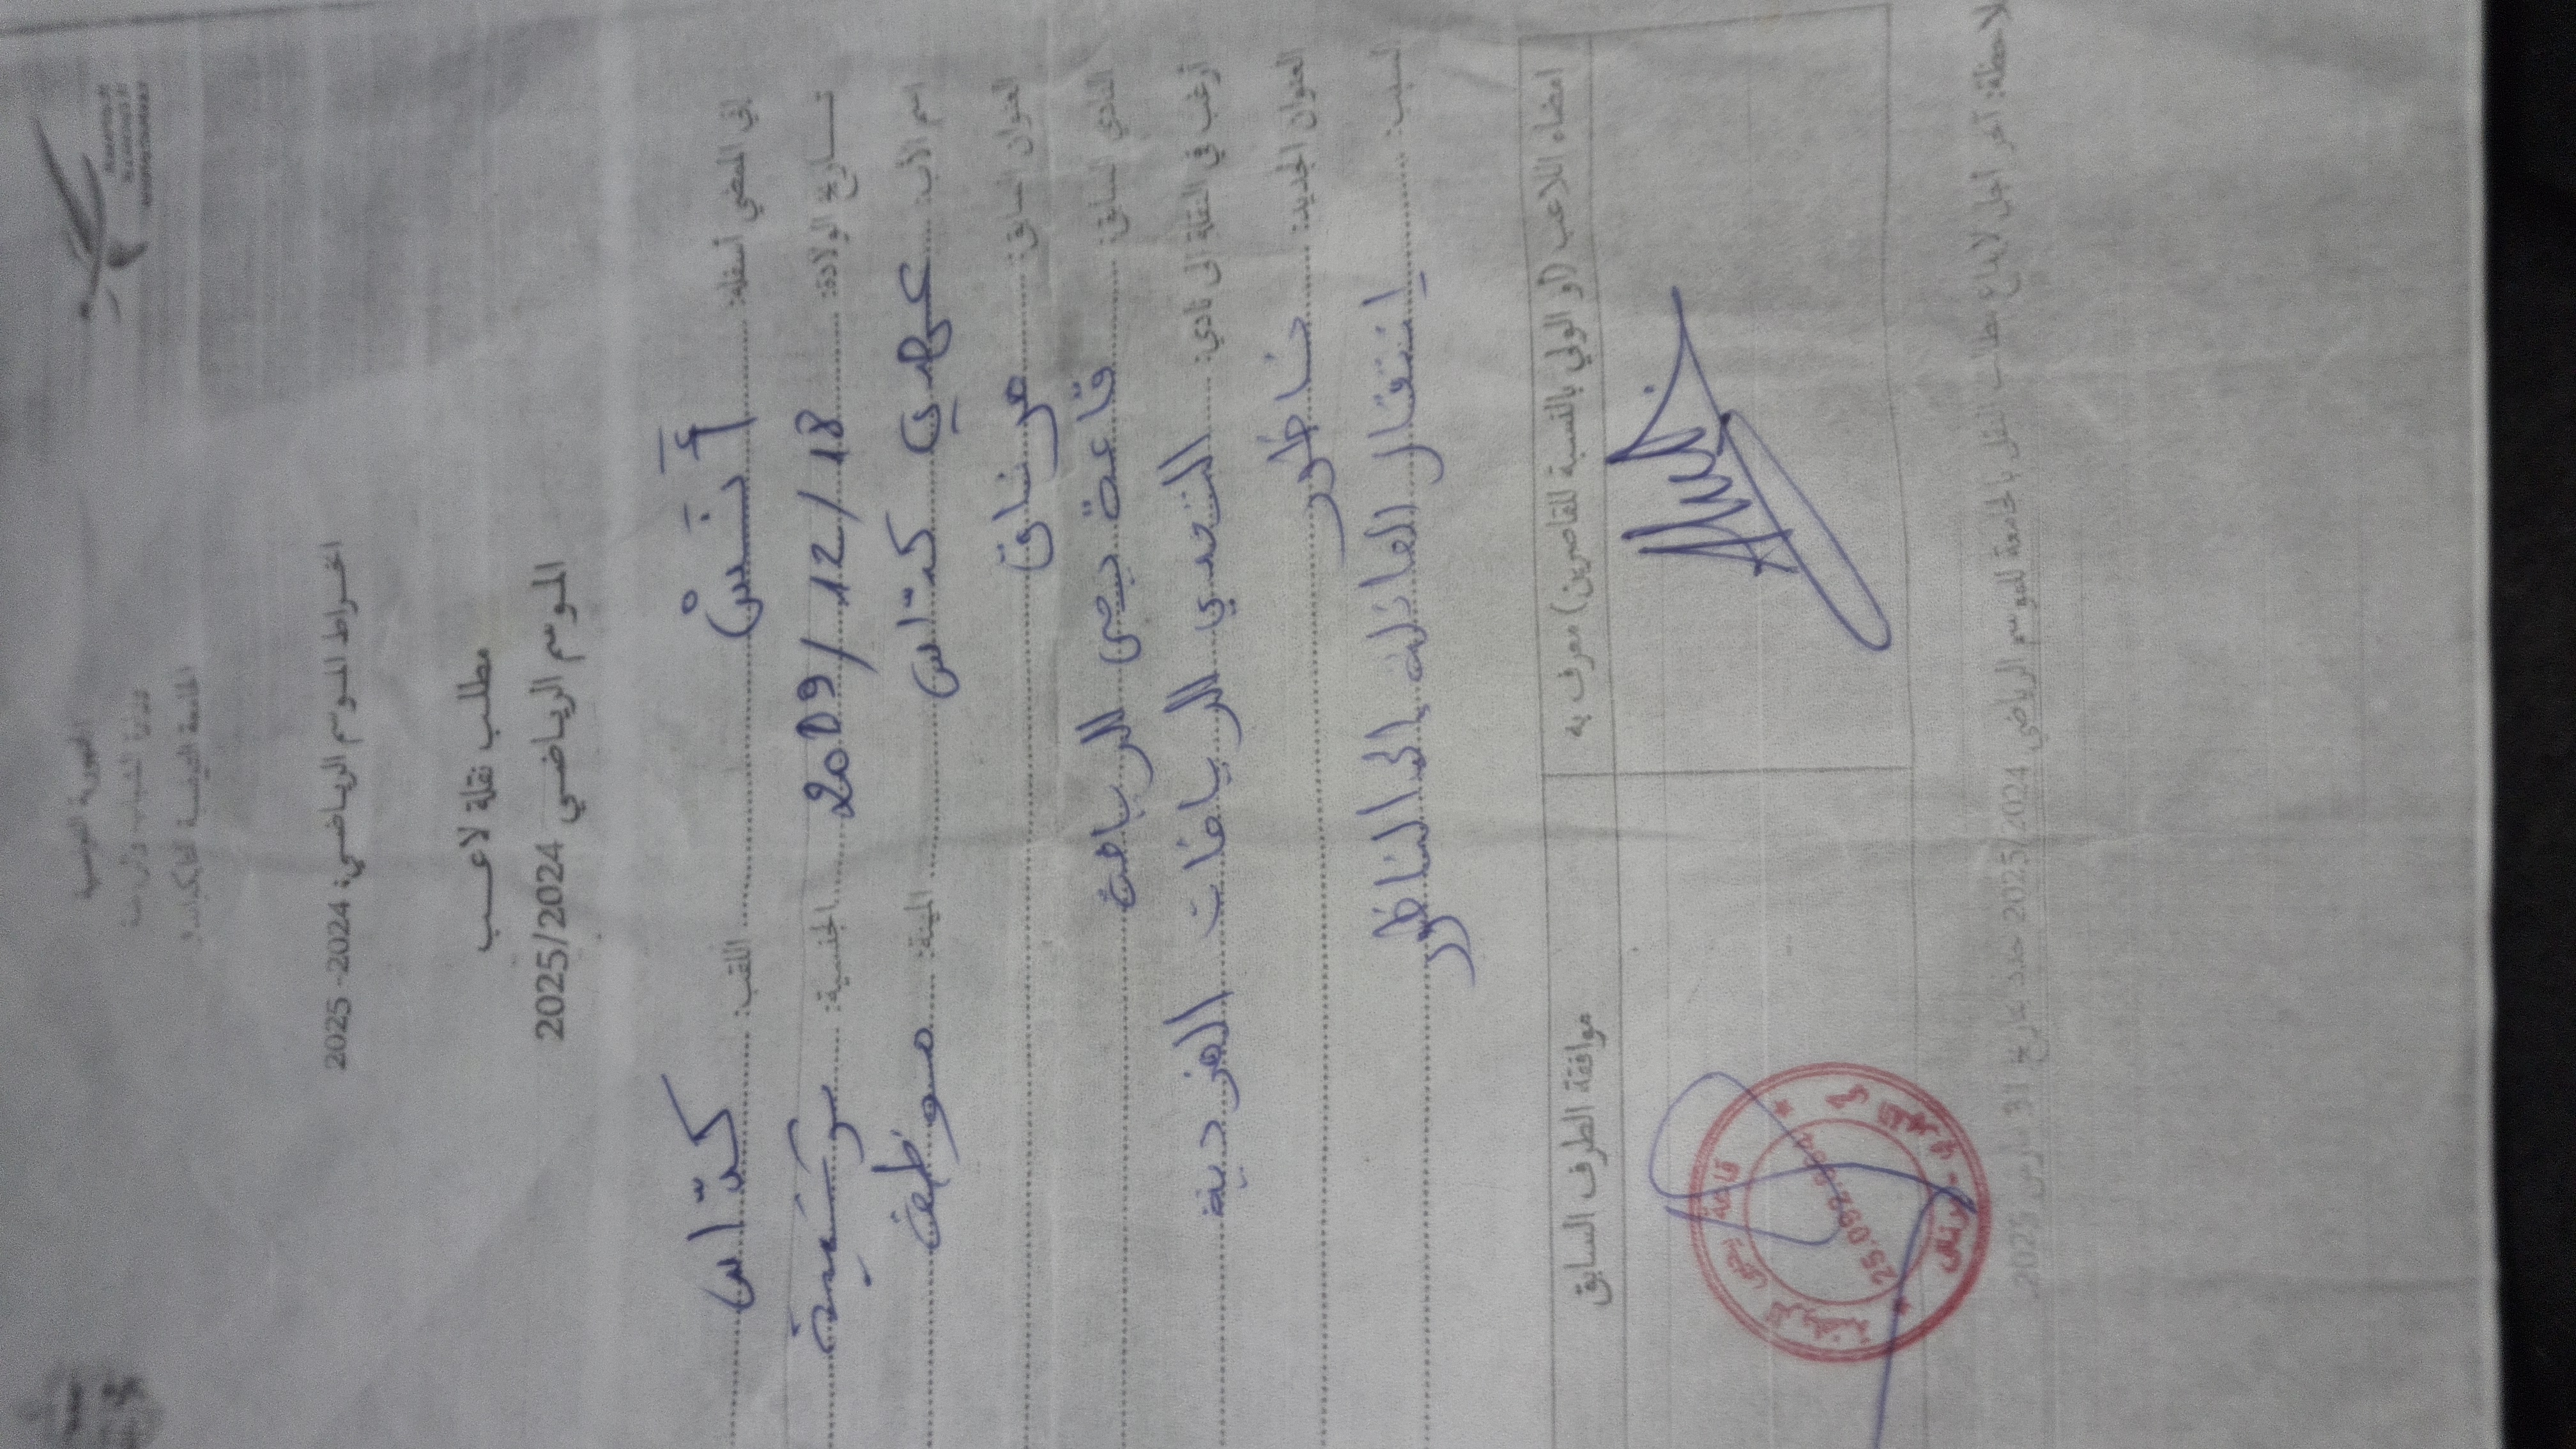 الجمهورية التونسية
وزارة الشباب والرياضة
الجامعة التونسية للتايكواندو
انخراط الموسم الرياضي: 2024- 2025
مطلب نقلة لاعب
الموسم الرياضي 2025/2024
إني الممضي أسفله: أنس اللقب: كدّاس
تاريخ الولادة: 18/12/2009 الجنسية: تونسية
اسم الأب: كدّاس المهنة: موظف
العنوان السابق: مرناق
النادي السابق: قاعة يحي الرياضة
أرغب في النقلة الى نادي: التحدي الرياضات الفردية
العنوان الجديد: ناظور
السبب: إنتقال العائلة إلى الناظور
امضاء اللاعب (أو الولي بالنسبة للقاصرين) معرف به
موافقة الطرف السابق
قاعة يحي الرياضية
ملاحظة: آخر أجل لايداع مطالب النقل بالجامعة للموسم الرياضي 2025/2024 حدد بتاريخ 31 مارس 2025.